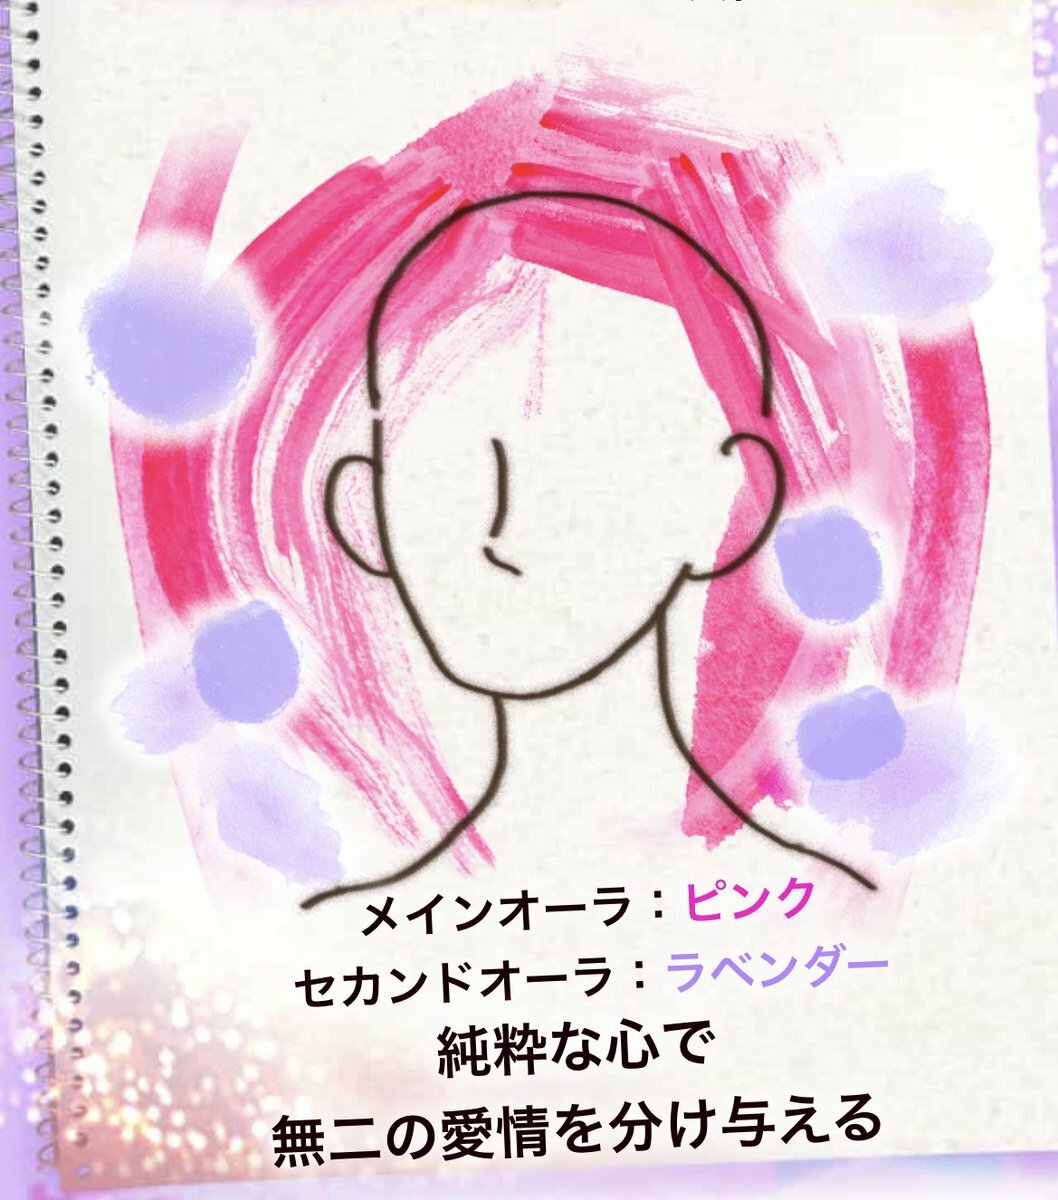 メインオーラ：ピンク
セカンドオーラ：ラベンダー
純粋な心で
無二の愛情を分け与える